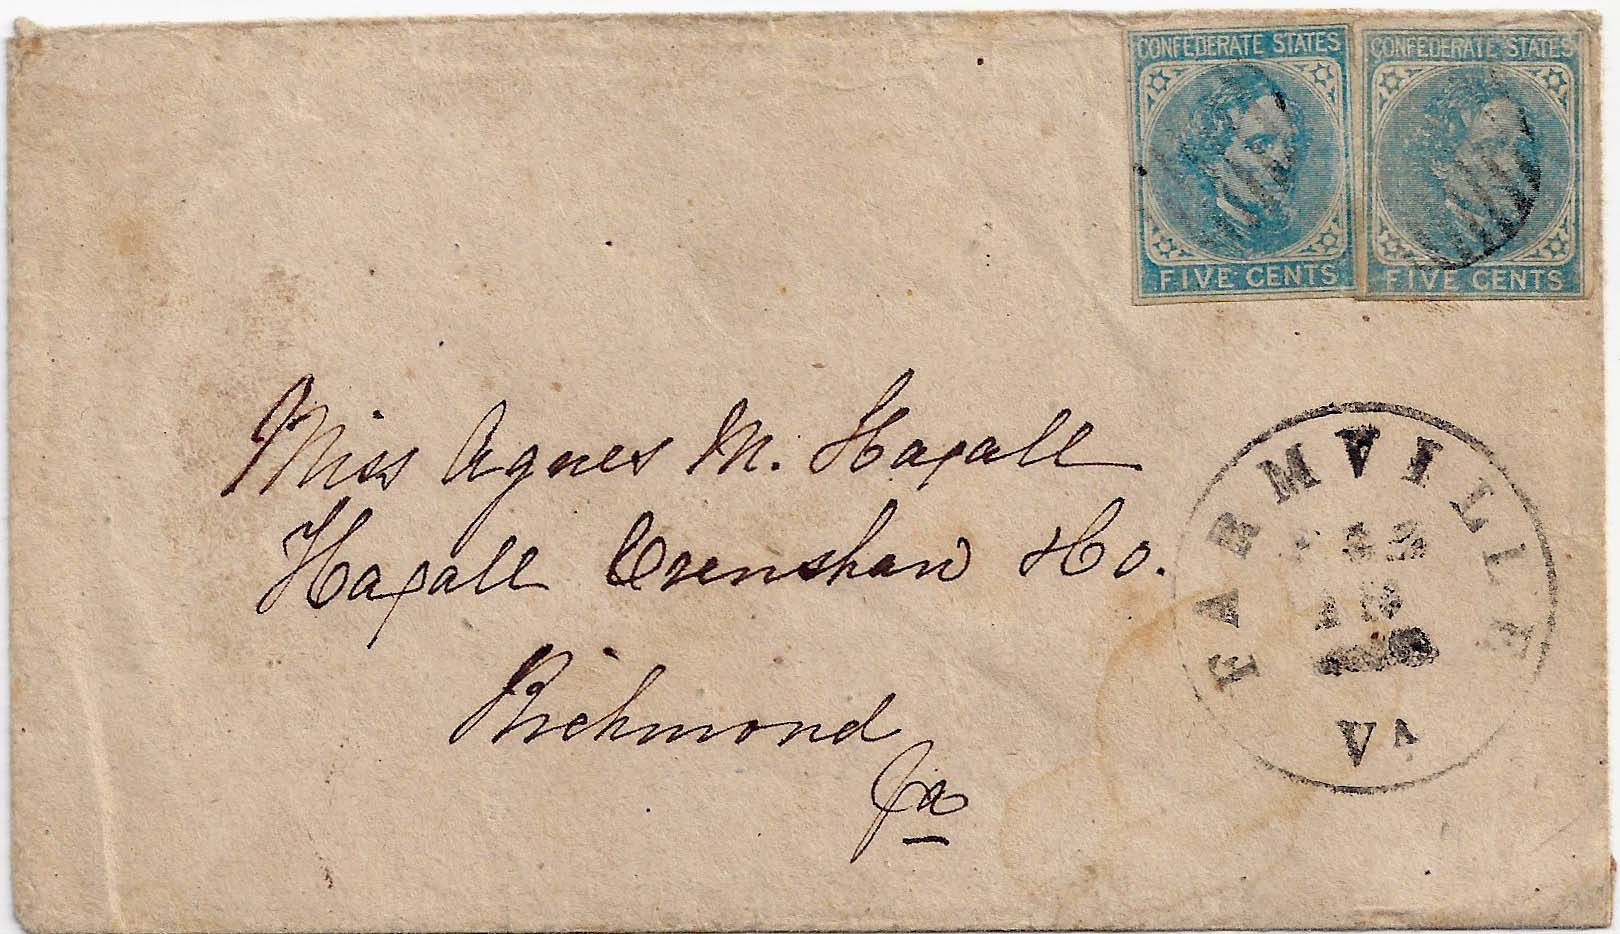 CONFEDERATE STATES
FIVE CENTS
CONFEDERATE STATES
FIVE CENTS
Miss Agnes M. Haxall
Haxall Crenshaw Ho.
Richmond
Va
FARMVILLE
VA